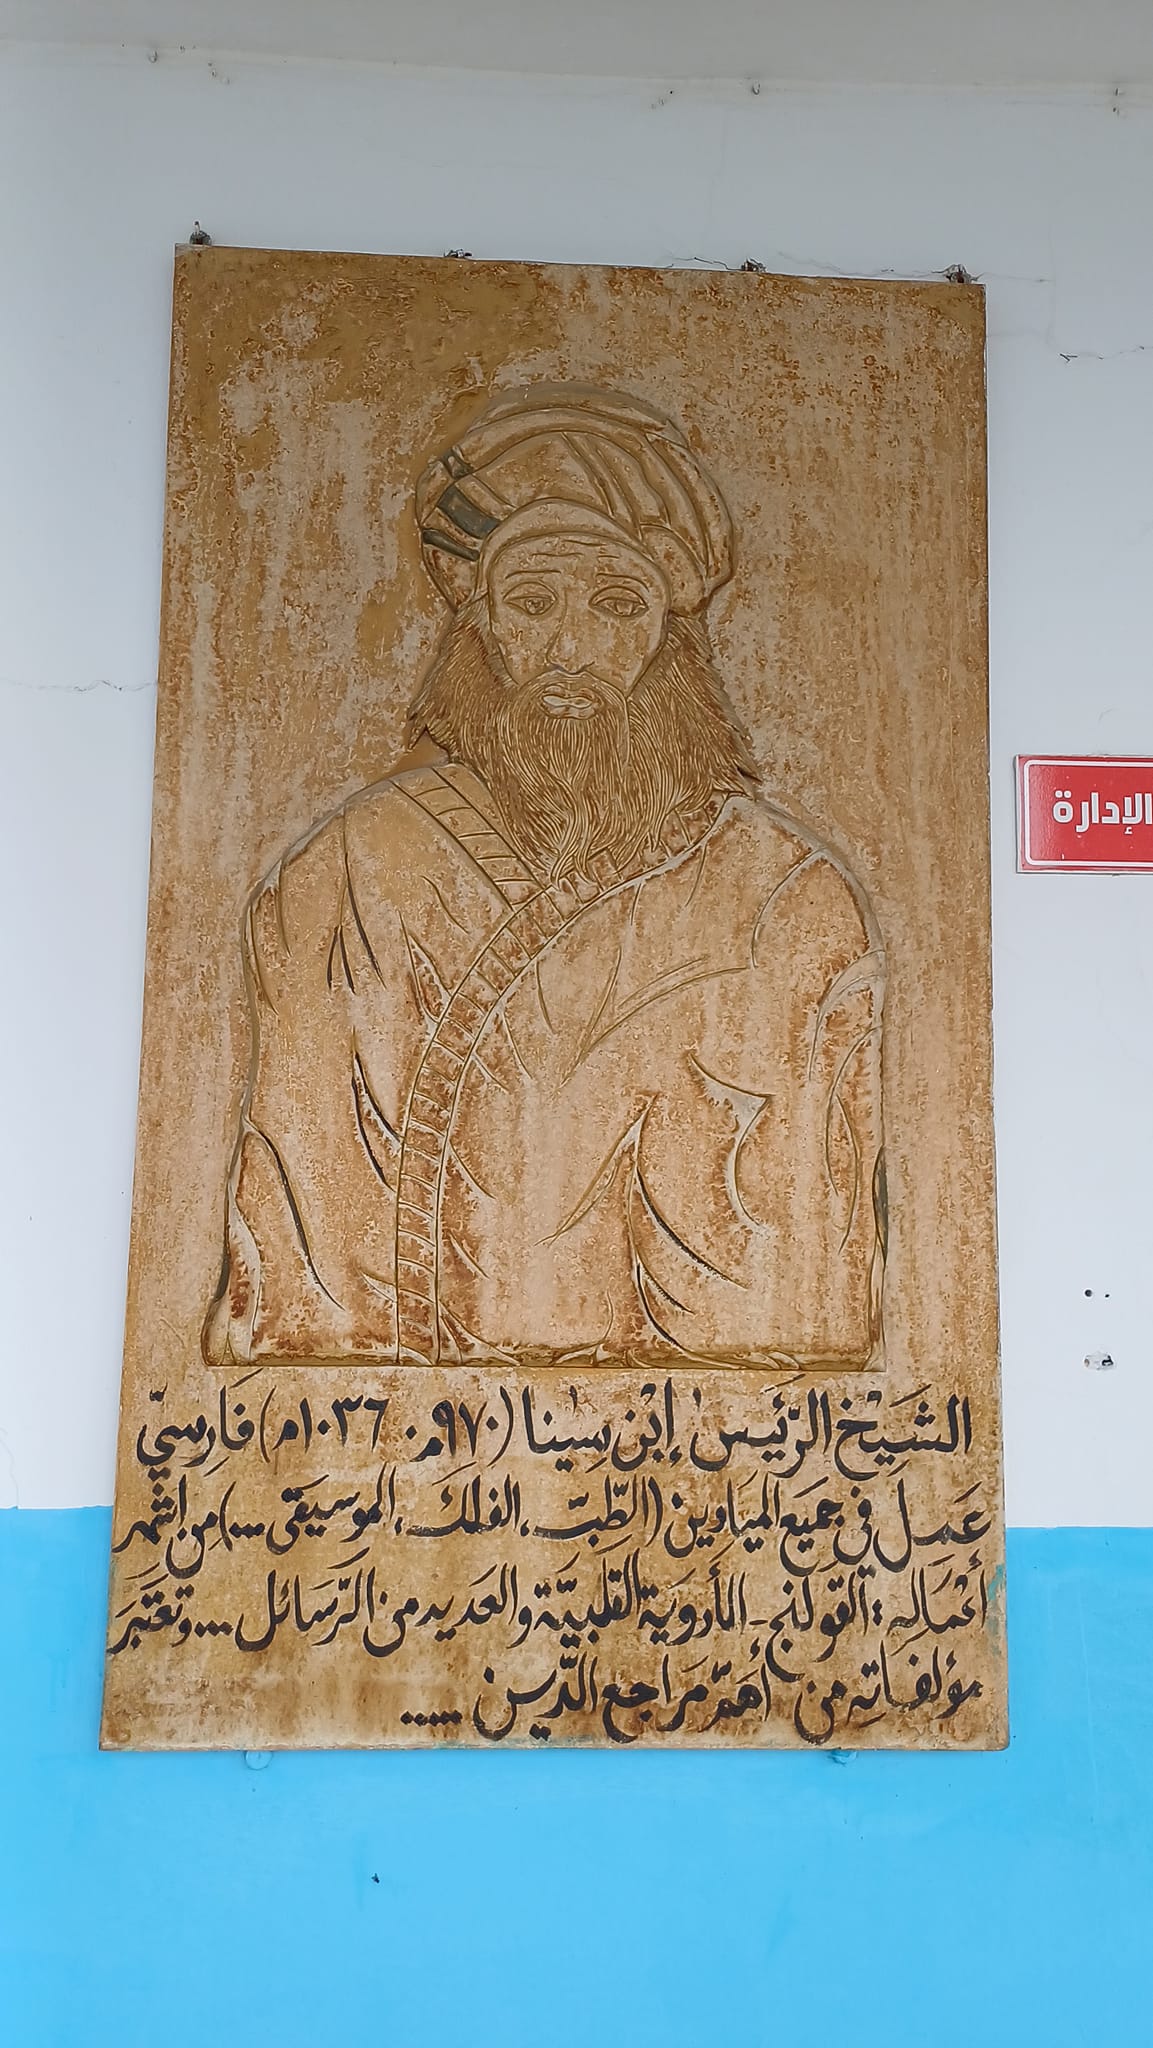 الإدارة
الشَيْخ الرَّئيس إبْن سِينا (٩٧٠م. ١٠٣٦م) فَارِسيّ
عَمل في جميع الميَادين (الطِّبّ، الفلك، الموسيقى...) من اشهر
أعْمَالِه: القولنج - الأدويَة القلبيّة والعَديد من الرَّسَائل ... وتعْتبَر
مؤلفاتِه من أهَمّ مَراجع الدّين .....